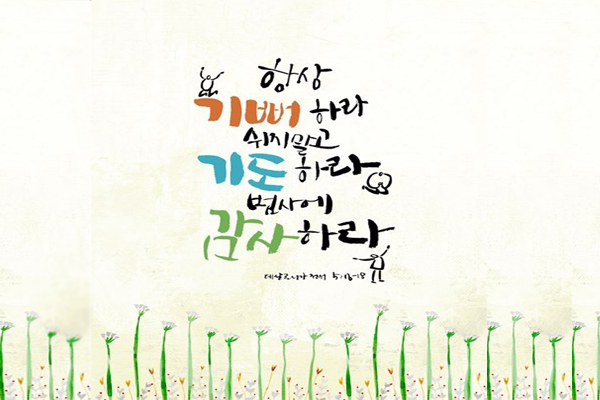 항상
기뻐하라
쉬지말고
기도하라
범사에
감사하라
데살로니가 전서 5:16-18